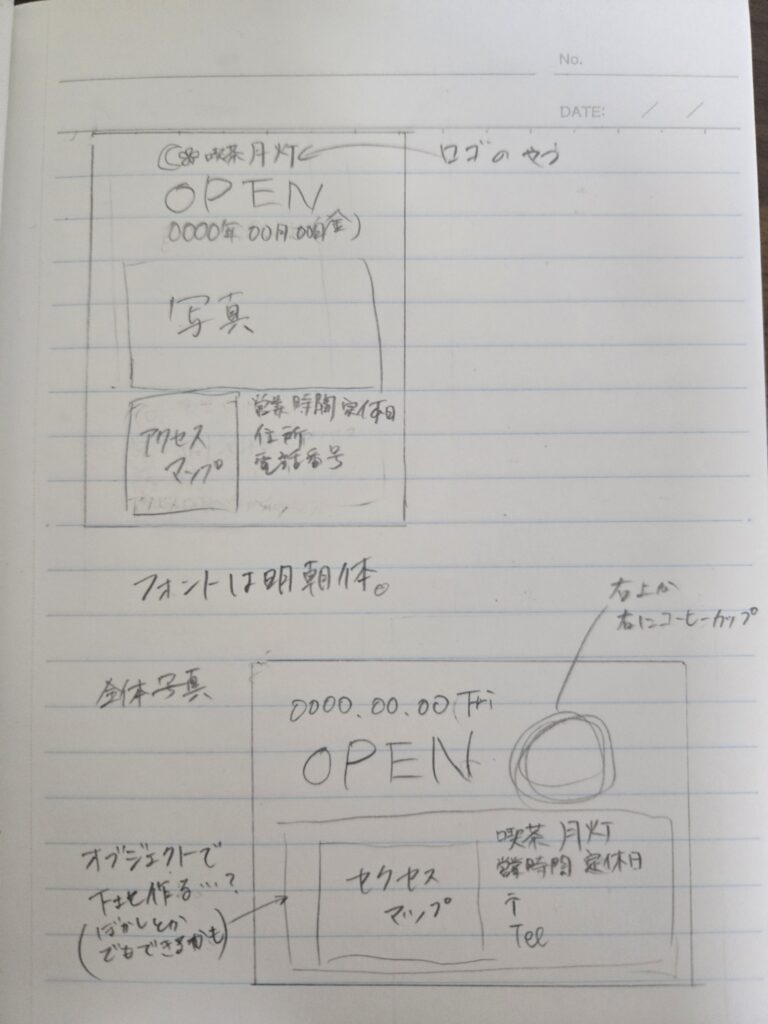 No.
DATE: / /
喫茶 月灯
ロゴのやつ
OPEN
0000年 00月 00日(金)
写真
アクセス
マップ
営業時間 定休日
住所
電話番号
フォントは明朝体。
右上か
右にコーヒーカップ
全体写真
0000.00.00(Fri
OPEN
オブジェクトで
下地作る…?
(ぼかしとか
でもできるかも)
セクセス
マップ
喫茶 月灯
営業時間 定休日
〒
Tel